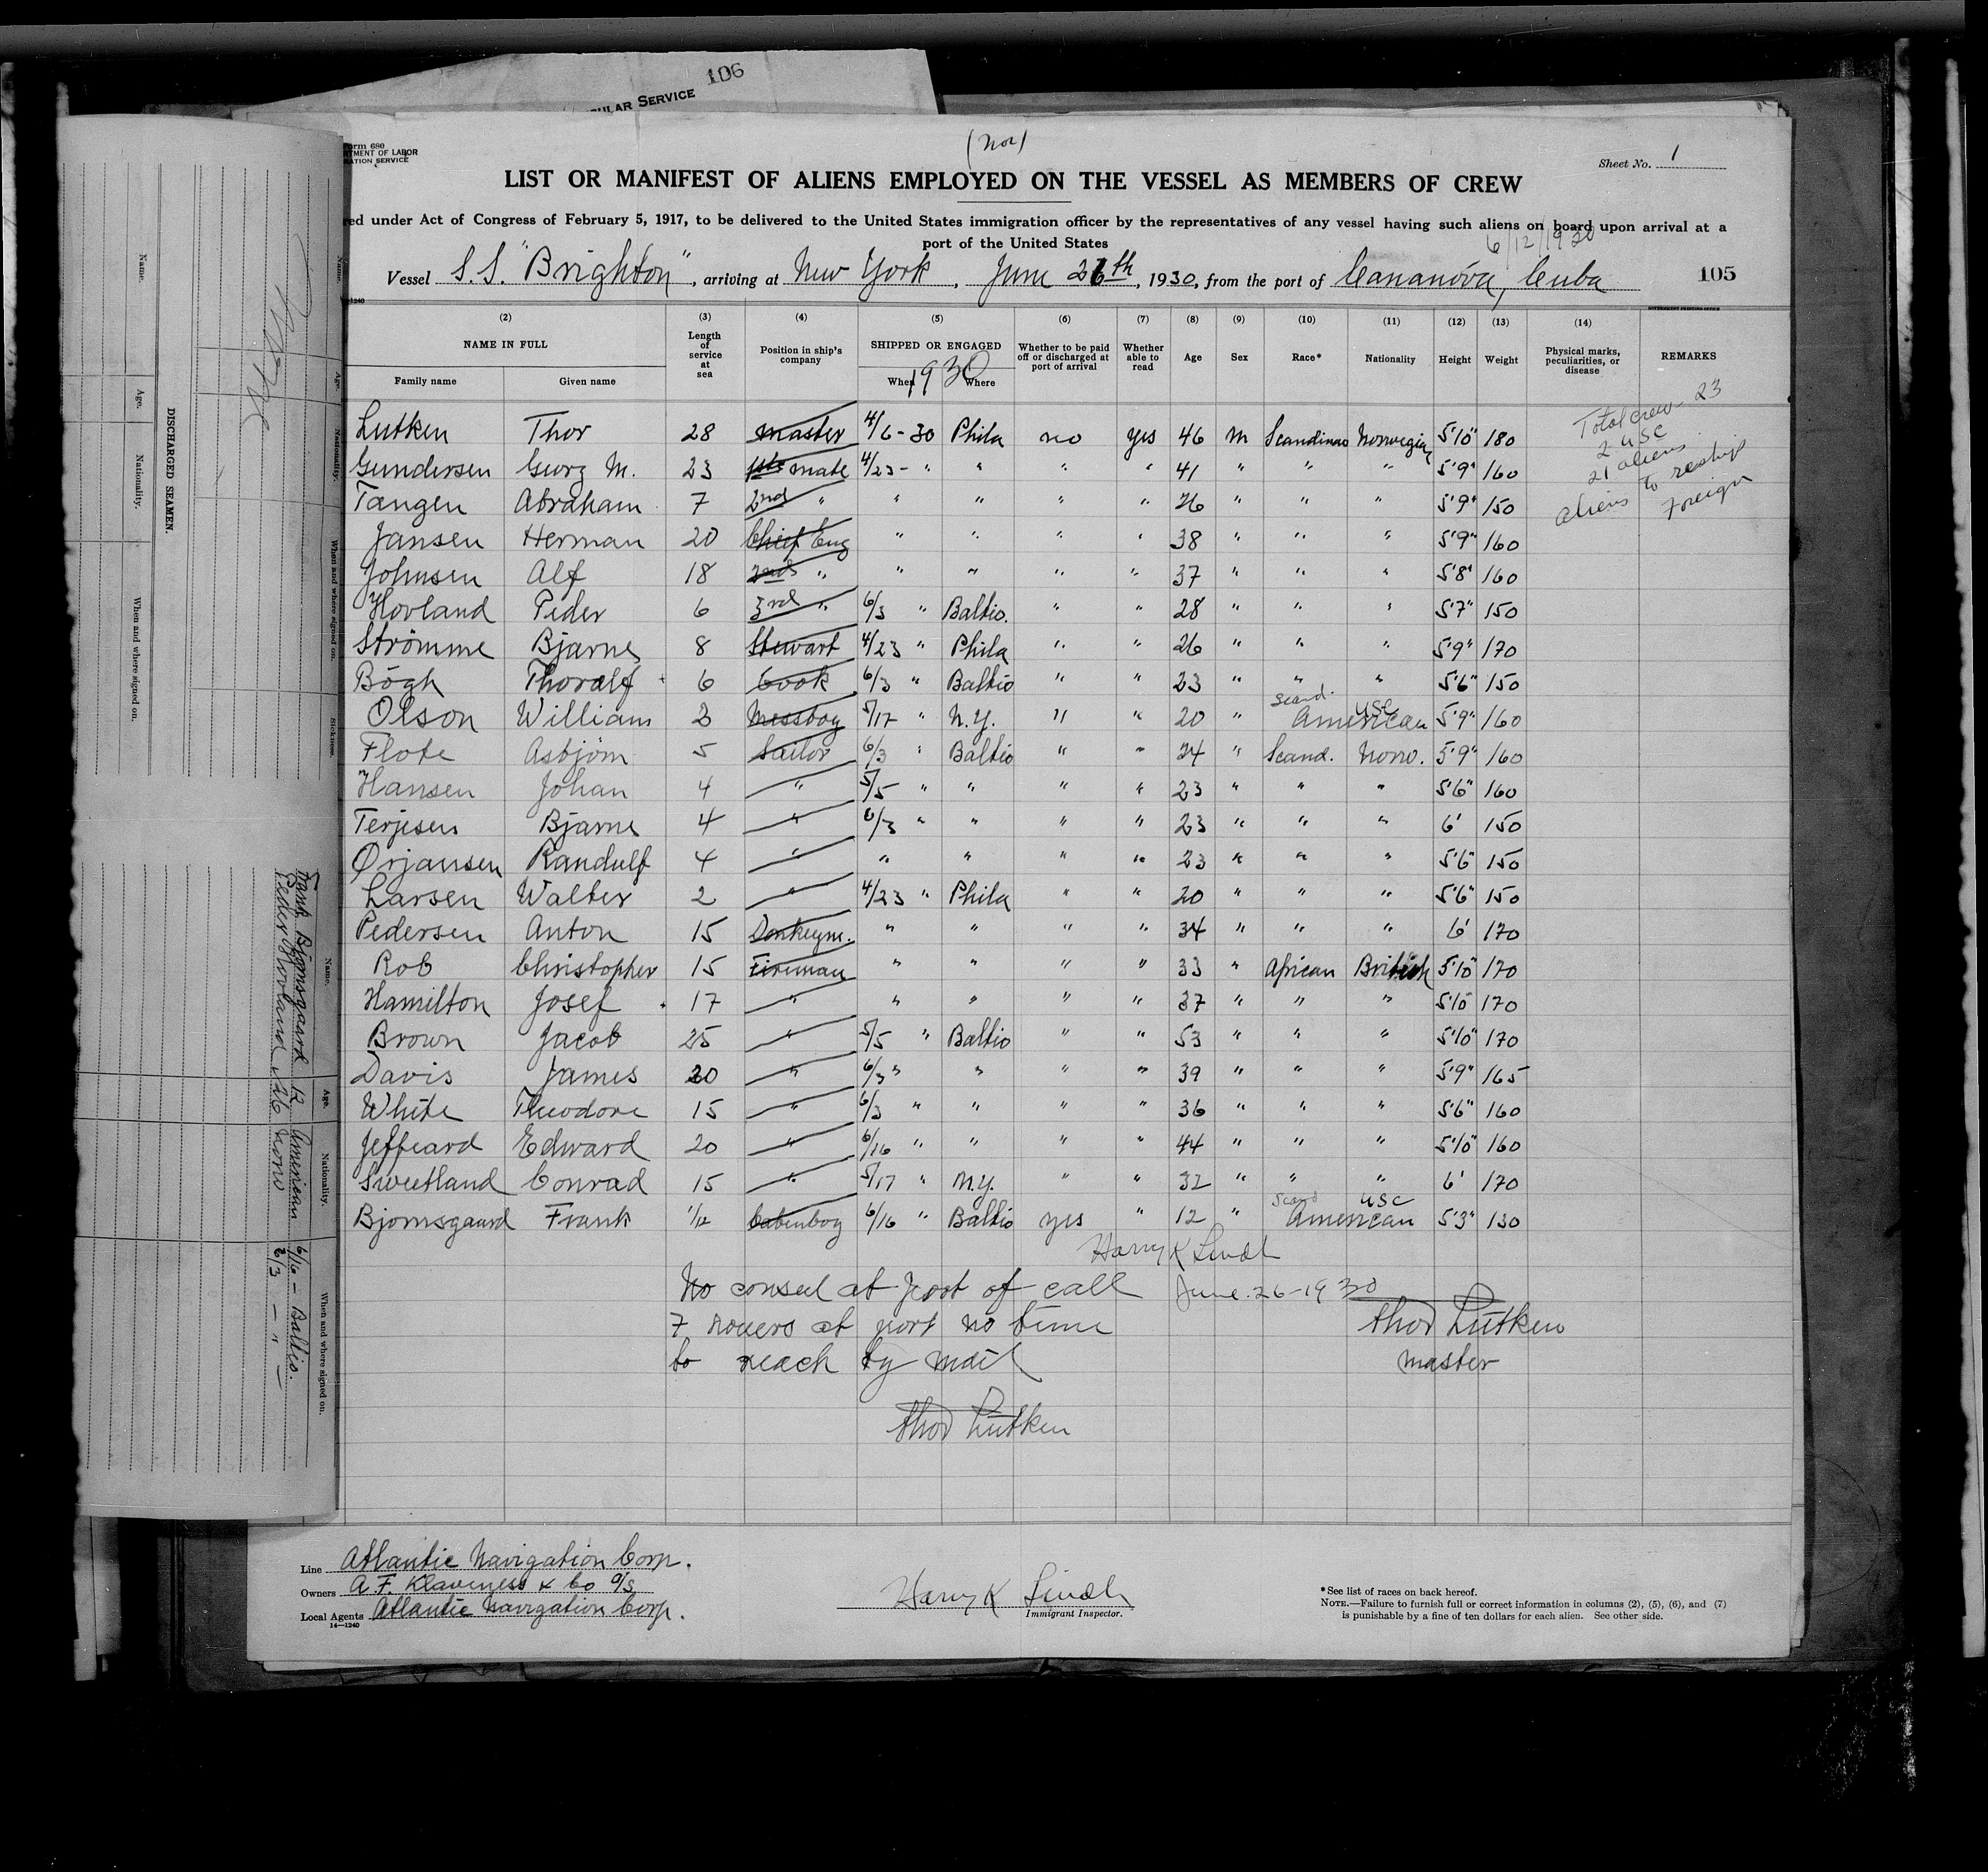 106
ULAR SERVICE
Form 680
RTMENT OF LABOR
RATION SERVICE
(Nor)
Sheet No. 1
LIST OR MANIFEST OF ALIENS EMPLOYED ON THE VESSEL AS MEMBERS OF CREW
red under Act of Congress of February 5, 1917, to be delivered to the United States immigration officer by the representatives of any vessel having such aliens on board upon arrival at a
port of the United States
6/12/1930
Vessel S.S. "Brighton", arriving at New York, June 26th, 1930, from the port of Cananova, Cuba
105
(2) (3) (4) (5) (6) (7) (8) (9) (10) (11) (12) (13) (14)
NAME IN FULL Length of service at sea Position in ship's company SHIPPED OR ENGAGED Whether to be paid off or discharged at port of arrival Whether able to read Age Sex Race* Nationality Height Weight Physical marks, peculiarities, or disease REMARKS
Family name Given name When 1930 Where
Total crew - 23
2 USC
21 aliens
aliens to reship
Foreign
Lutken Thor 28 Master 4/6-30 Phila no yes 46 M Scandinav Norwegian 5'10" 180
Gundersen Georg M. 23 1ste mate 4/23 - " " " " 41 " " " 5'9" 160
Tangen Abraham 7 2nd " " " " " 26 " " " 5'9" 150
Jansen Herman 20 Chief Eng " " " " 38 " " " 5'9" 160
Johnsen Alf 18 2nd " " " " " 37 " " " 5'8" 160
Hovland Peder 6 3rd " 6/3 " Baltio. " " 28 " " " 5'7" 150
Strömme Bjarne 8 Stewart 4/23 " Phila " " 26 " " " 5'9" 170
Bögh Thoralf 6 Cook 6/3 " Baltio " " 23 " " " 5'6" 150
Olson William 3 Messboy 5/17 " N.Y. " " 20 " Scand. American USC 5'9" 160
Flote Asbjörn 5 Sailor 6/3 " Baltio " " 24 " Scand. Norw. 5'9" 160
Hansen Johan 4 " 5/5 " " " " 23 " " " 5'6" 160
Terjesen Bjarne 4 " 6/3 " " " " 23 " " " 6' 150
Ørjansen Randulf 4 " " " " " 23 " " " 5'6" 150
Larsen Walter 2 " 4/23 " Phila " " 20 " " " 5'6" 150
Pedersen Anton 15 Donkeym. " " " " 34 " " " 6' 170
Rob Christopher 15 Fireman " " " " 33 " African British 5'10" 170
Hamilton Josef 17 " " " " " 37 " " " 5'10 170
Brown Jacob 25 " 5/5 " Baltio " " 53 " " " 5'10" 170
Davis James 20 " 6/3 " " " " 39 " " " 5'9" 165
White Theodore 15 " 6/3 " " " " 36 " " " 5'6" 160
Jeffeard Edward 20 " 6/16 " " " " 44 " " " 5'10" 160
Sweetland Conrad 15 " 5/17 " N.Y. " " 32 " " " 6' 170
Bjornsgaard Frank 1/12 Cabinboy 6/16 " Baltio yes " 12 " Scand American USC 5'3" 130
Harry K Lindh
No consul at port of call June 26-1930
7 houers at port no time Thor Lütken
to reach by mail Master
Thor Lütken
Line Atlantic Navigation Corp.
Owners A.F. Klaveness & Co A/S
Local Agents Atlantic Navigation Corp.
14—1240
Harry K Lindh
Immigrant Inspector.
*See list of races on back hereof.
NOTE.—Failure to furnish full or correct information in columns (2), (5), (6), and (7)
is punishable by a fine of ten dollars for each alien. See other side.
DISCHARGED SEAMEN.
Name. Age. Nationality. When and where signed on.
Name. Age. Nationality. When and where signed on. Sickness.
Name. Age. Nationality. When and where signed on.
Frank Bjornsgaard 12 American 6/16 - Baltio.
Peder Hovland 26 Norw 6/3 - " -